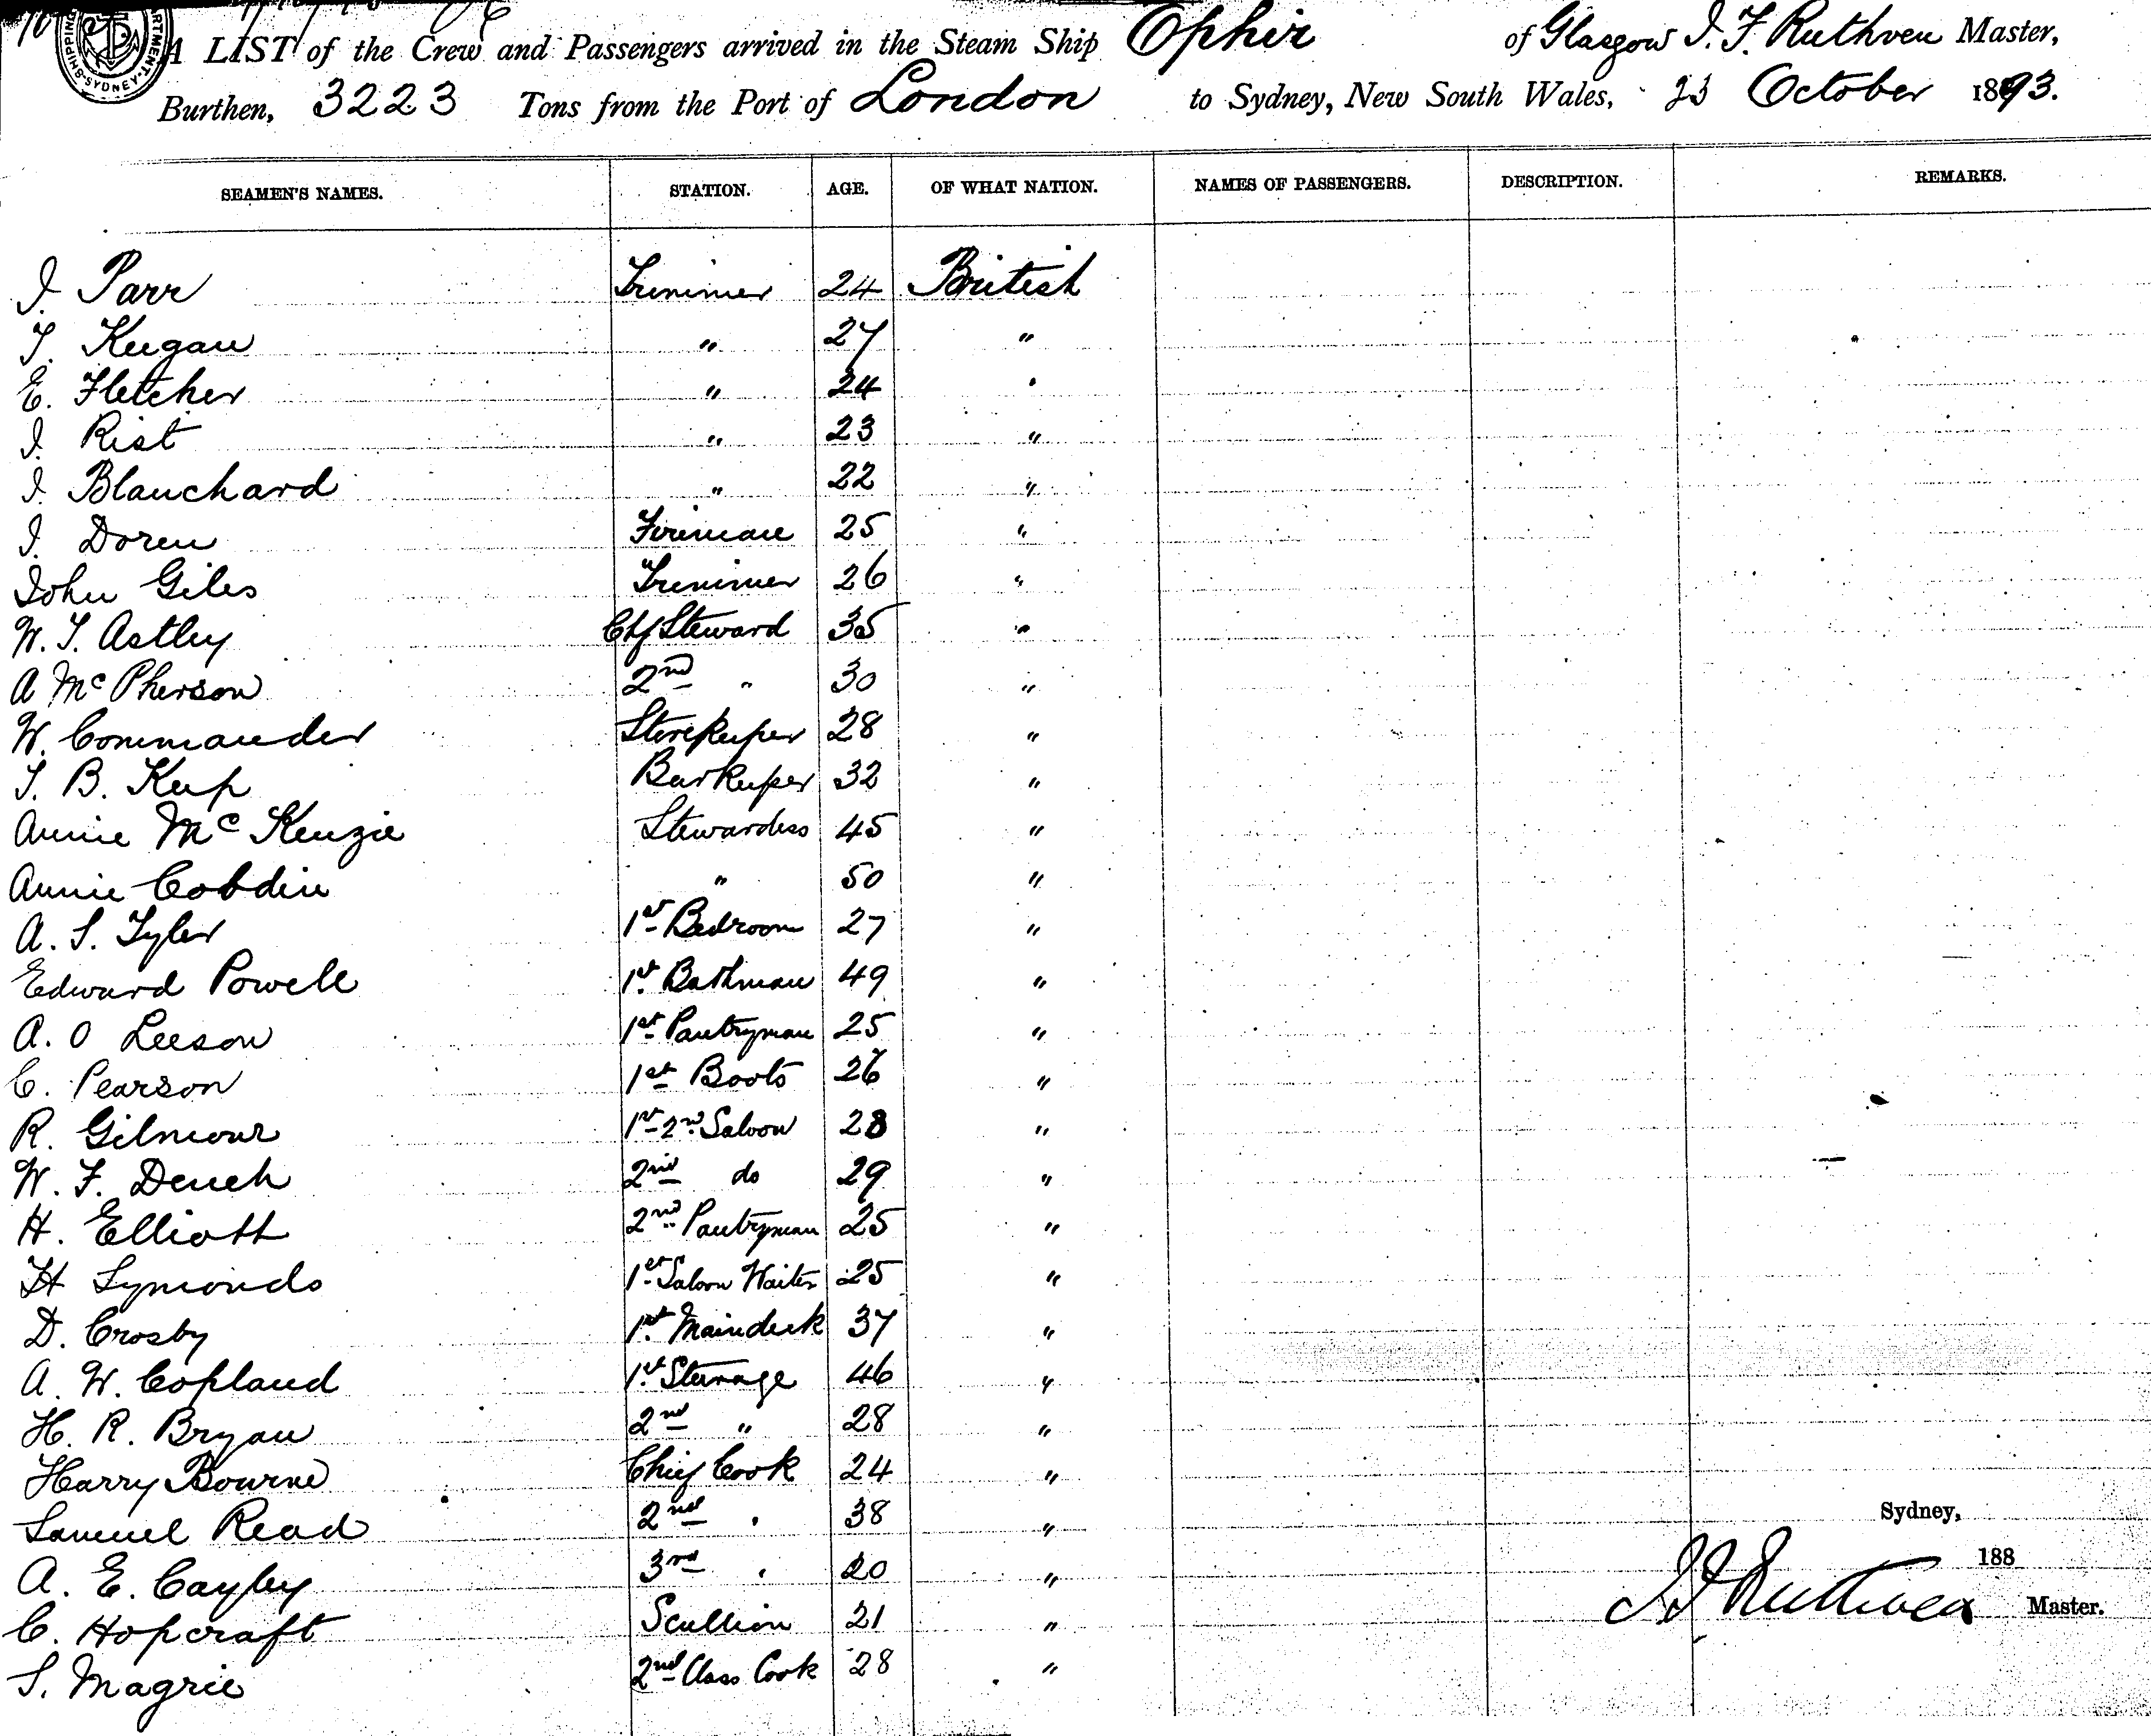 A LIST of the Crew and Passengers arrived in the Steam Ship Ophir of Glasgow J. F. Ruthven Master,
Burthen, 3223 Tons from the Port of London to Sydney, New South Wales, 23 October 1893.
SEAMEN'S NAMES. STATION. AGE. OF WHAT NATION. NAMES OF PASSENGERS. DESCRIPTION. REMARKS.
J. Parr Trimmer 24 British
T. Keegan " 27 "
E. Fletcher " 24 "
J. Rist " 23 "
J. Blanchard " 22 "
J. Doren Fireman 25 "
John Giles Trimmer 26 "
W. T. Astley Chf Steward 35 "
A McPherson 2nd " 30 "
W. Commander Storekeeper 28 "
T. B. Keep Barkeeper 32 "
Annie McKenzie Stewardess 45 "
Annie Cobdin " 50 "
A. S. Tyler 1st Bedroom 27 "
Edward Powell 1st Bathman 49 "
A. O Leeson 1st Pantryman 25 "
C. Pearson 1st Boots 26 "
R. Gilmour 1st 2nd Saloon 28 "
W. F. Dench 2nd do 29 "
H. Elliott 2nd Pantryman 25 "
H Symonds 1st Saloon Waiter 25 "
D. Crosby 1st Maindeck 37 "
A. W. Copland 1st Steerage 46 "
H. R. Bryan 2nd " 28 "
Harry Bourne Chief Cook 24 "
Samuel Read 2nd " 38 "
Sydney,
A. E. Cayley 3rd " 20 "
188
C. Hopcraft Scullion 21 "
J F Ruthven Master.
S. Magrie 2nd Class Cook 28 "